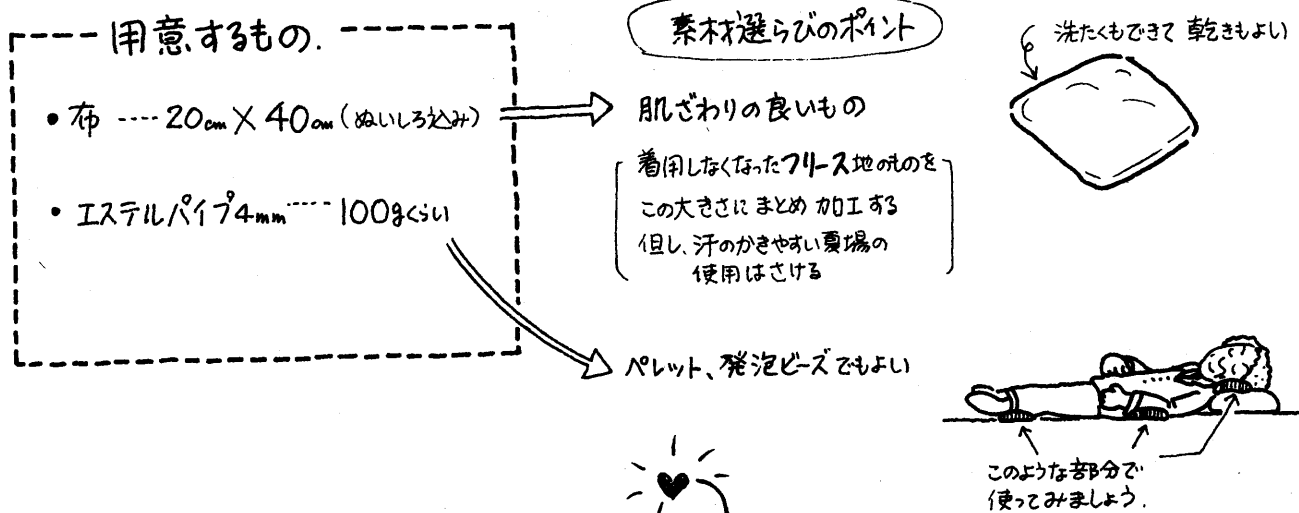 用意するもの.
・布 ---- 20cm×40cm(ぬいしろ込み)
・エステルパイプ4mm ---- 100gくらい
素材選らびのポイント
肌ざわりの良いもの
着用しなくなったフリース地のものを
この大きさにまとめ加工する
但し、汗のかきやすい夏場の
使用はさける
ペレット、発泡ビーズでもよい
洗たくもできて 乾きもよい
このような部分で
使ってみましょう.